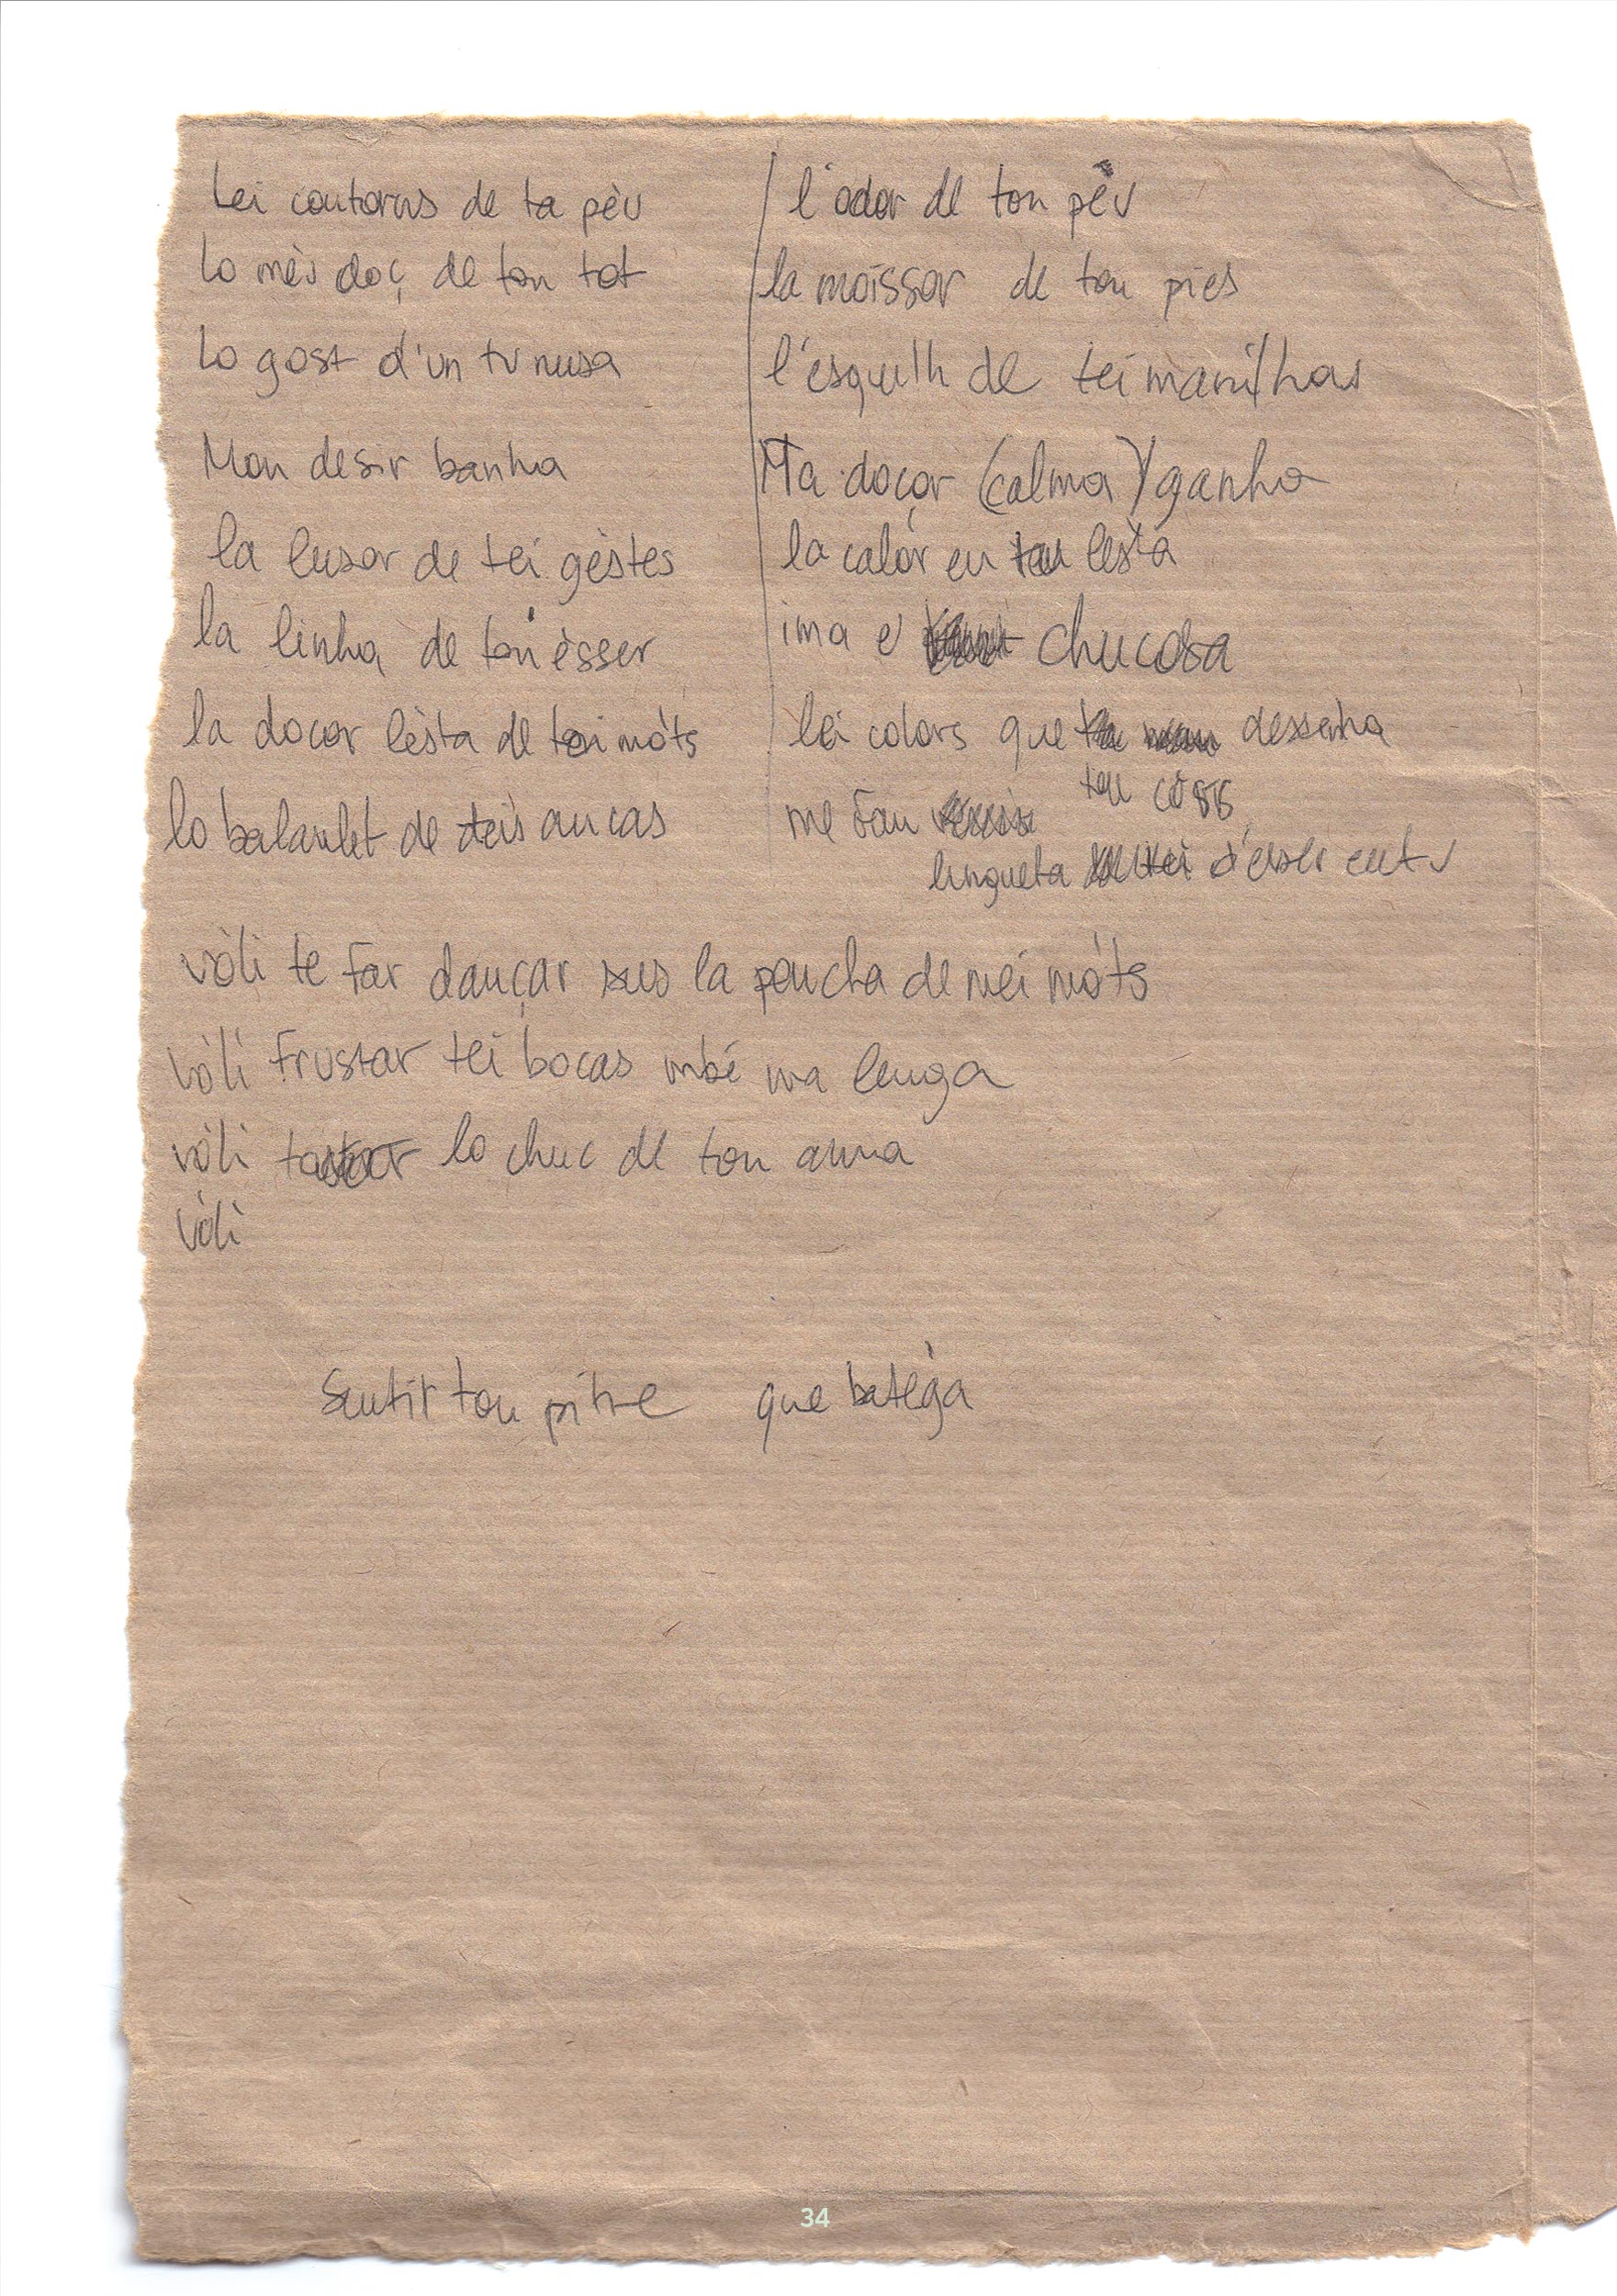 Lei contorns de ta pèu
Lo mèu doç de ton tot
Lo gost d'un tu nusa
Mon desir banha
la lusor de tei gèstes
la linha de ton èsser
la doçor lèsta de tei mòts
lo balanlet de teis aucas
l'odor de ton pèu
la moissor de ton pies
l'esquilh de tei manilhas
Ma doçor (calma) ganha
la calor en tau lèsta
ima e chucosa
lei colors que dessenha
ton còrs
me fau
lingueta d'esser en tu
vòli te far dançar sus la poncha de mei mòts
vòli frustar tei bocas mbé ma lenga
vòli tastar lo chuc de ton anma
vòli
Sentir ton pitre que batèga
34